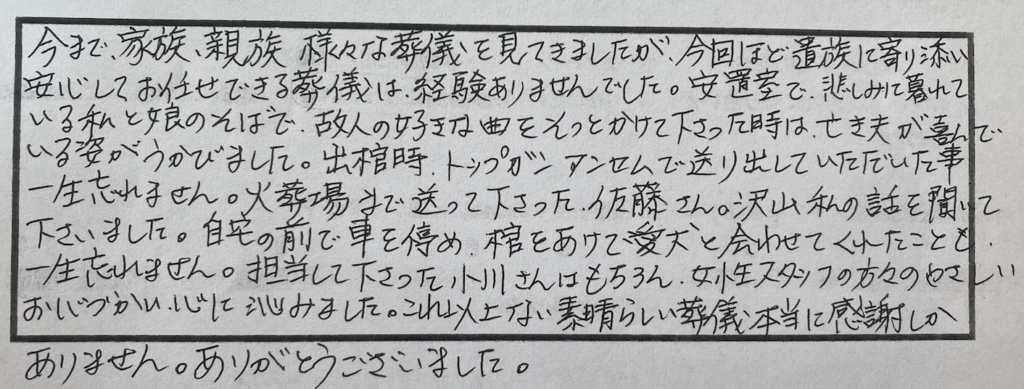 今まで、家族、親族 様々な葬儀を見てきましたが、今回ほど遺族に寄り添い
安心してお任せできる葬儀は、経験ありませんでした。安置室で、悲しみに暮れて
いる私と娘のそばで、故人の好きな曲をそっとかけて下さった時は、亡き夫が喜んで
いる姿がうかびました。出棺時、トップガン アンセムで送り出していただいた事
一生忘れません。火葬場まで送って下さった、佐藤さん。沢山私の話を聞いて
下さいました。自宅の前で車を停め、棺をあけて愛犬と会わせてくれたことも、
一生忘れません。担当して下さった小川さんはもちろん、女性スタッフの方々のやさしい
お心づかい、心に沁みました。これ以上ない素晴らしい葬儀、本当に感謝しか
ありません。ありがとうございました。